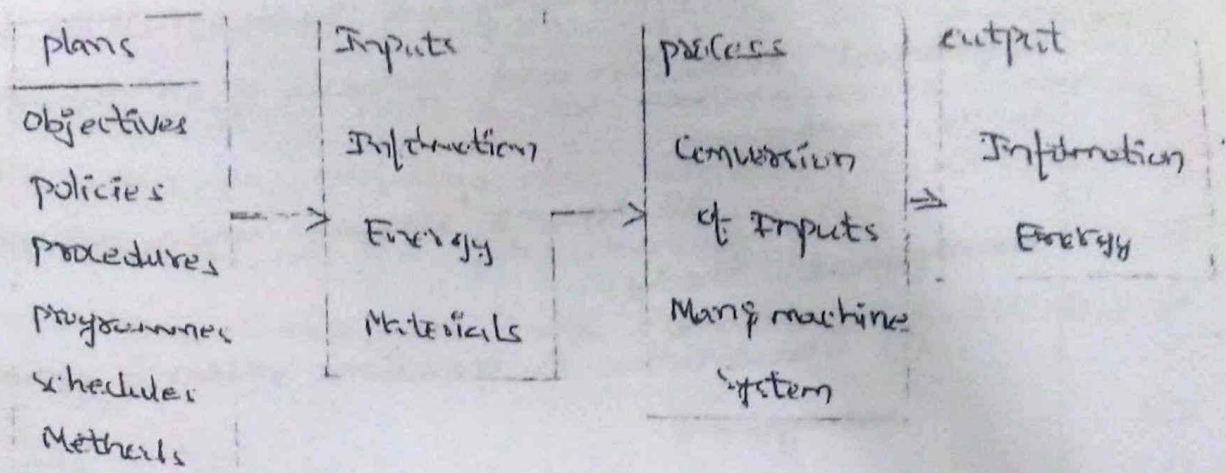 plans
Objectives
policies
procedures
programmes
schedules
Methods
Inputs
Information
Energy
Materials
process
Conversion
of Inputs
Man & machine
system
output
Information
Energy